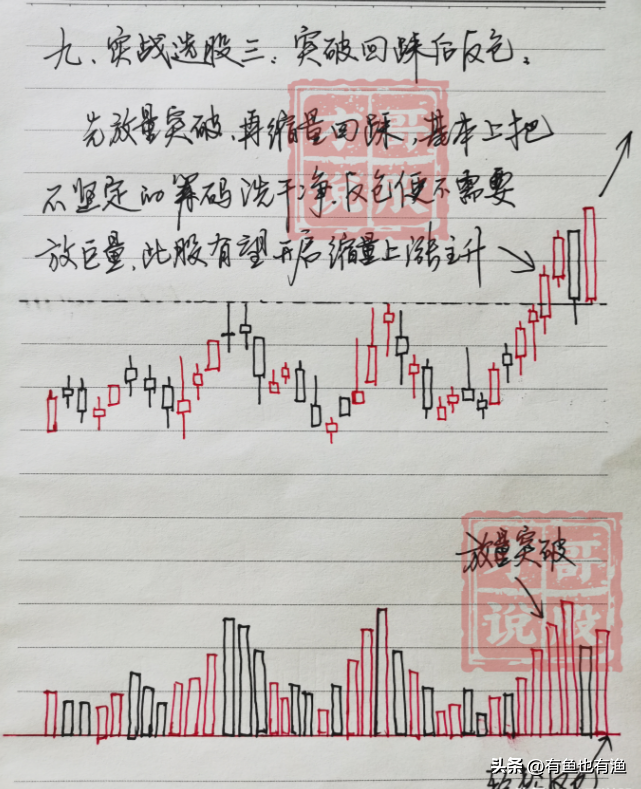 九、实战选股三:突破回踩后反包。
先放量突破,再缩量回踩,基本上把
不坚定的筹码洗干净,反包便不需要
放巨量,此股有望开启缩量上涨主升
放量突破
哥
说股
反包
头条 @有鱼也有渔